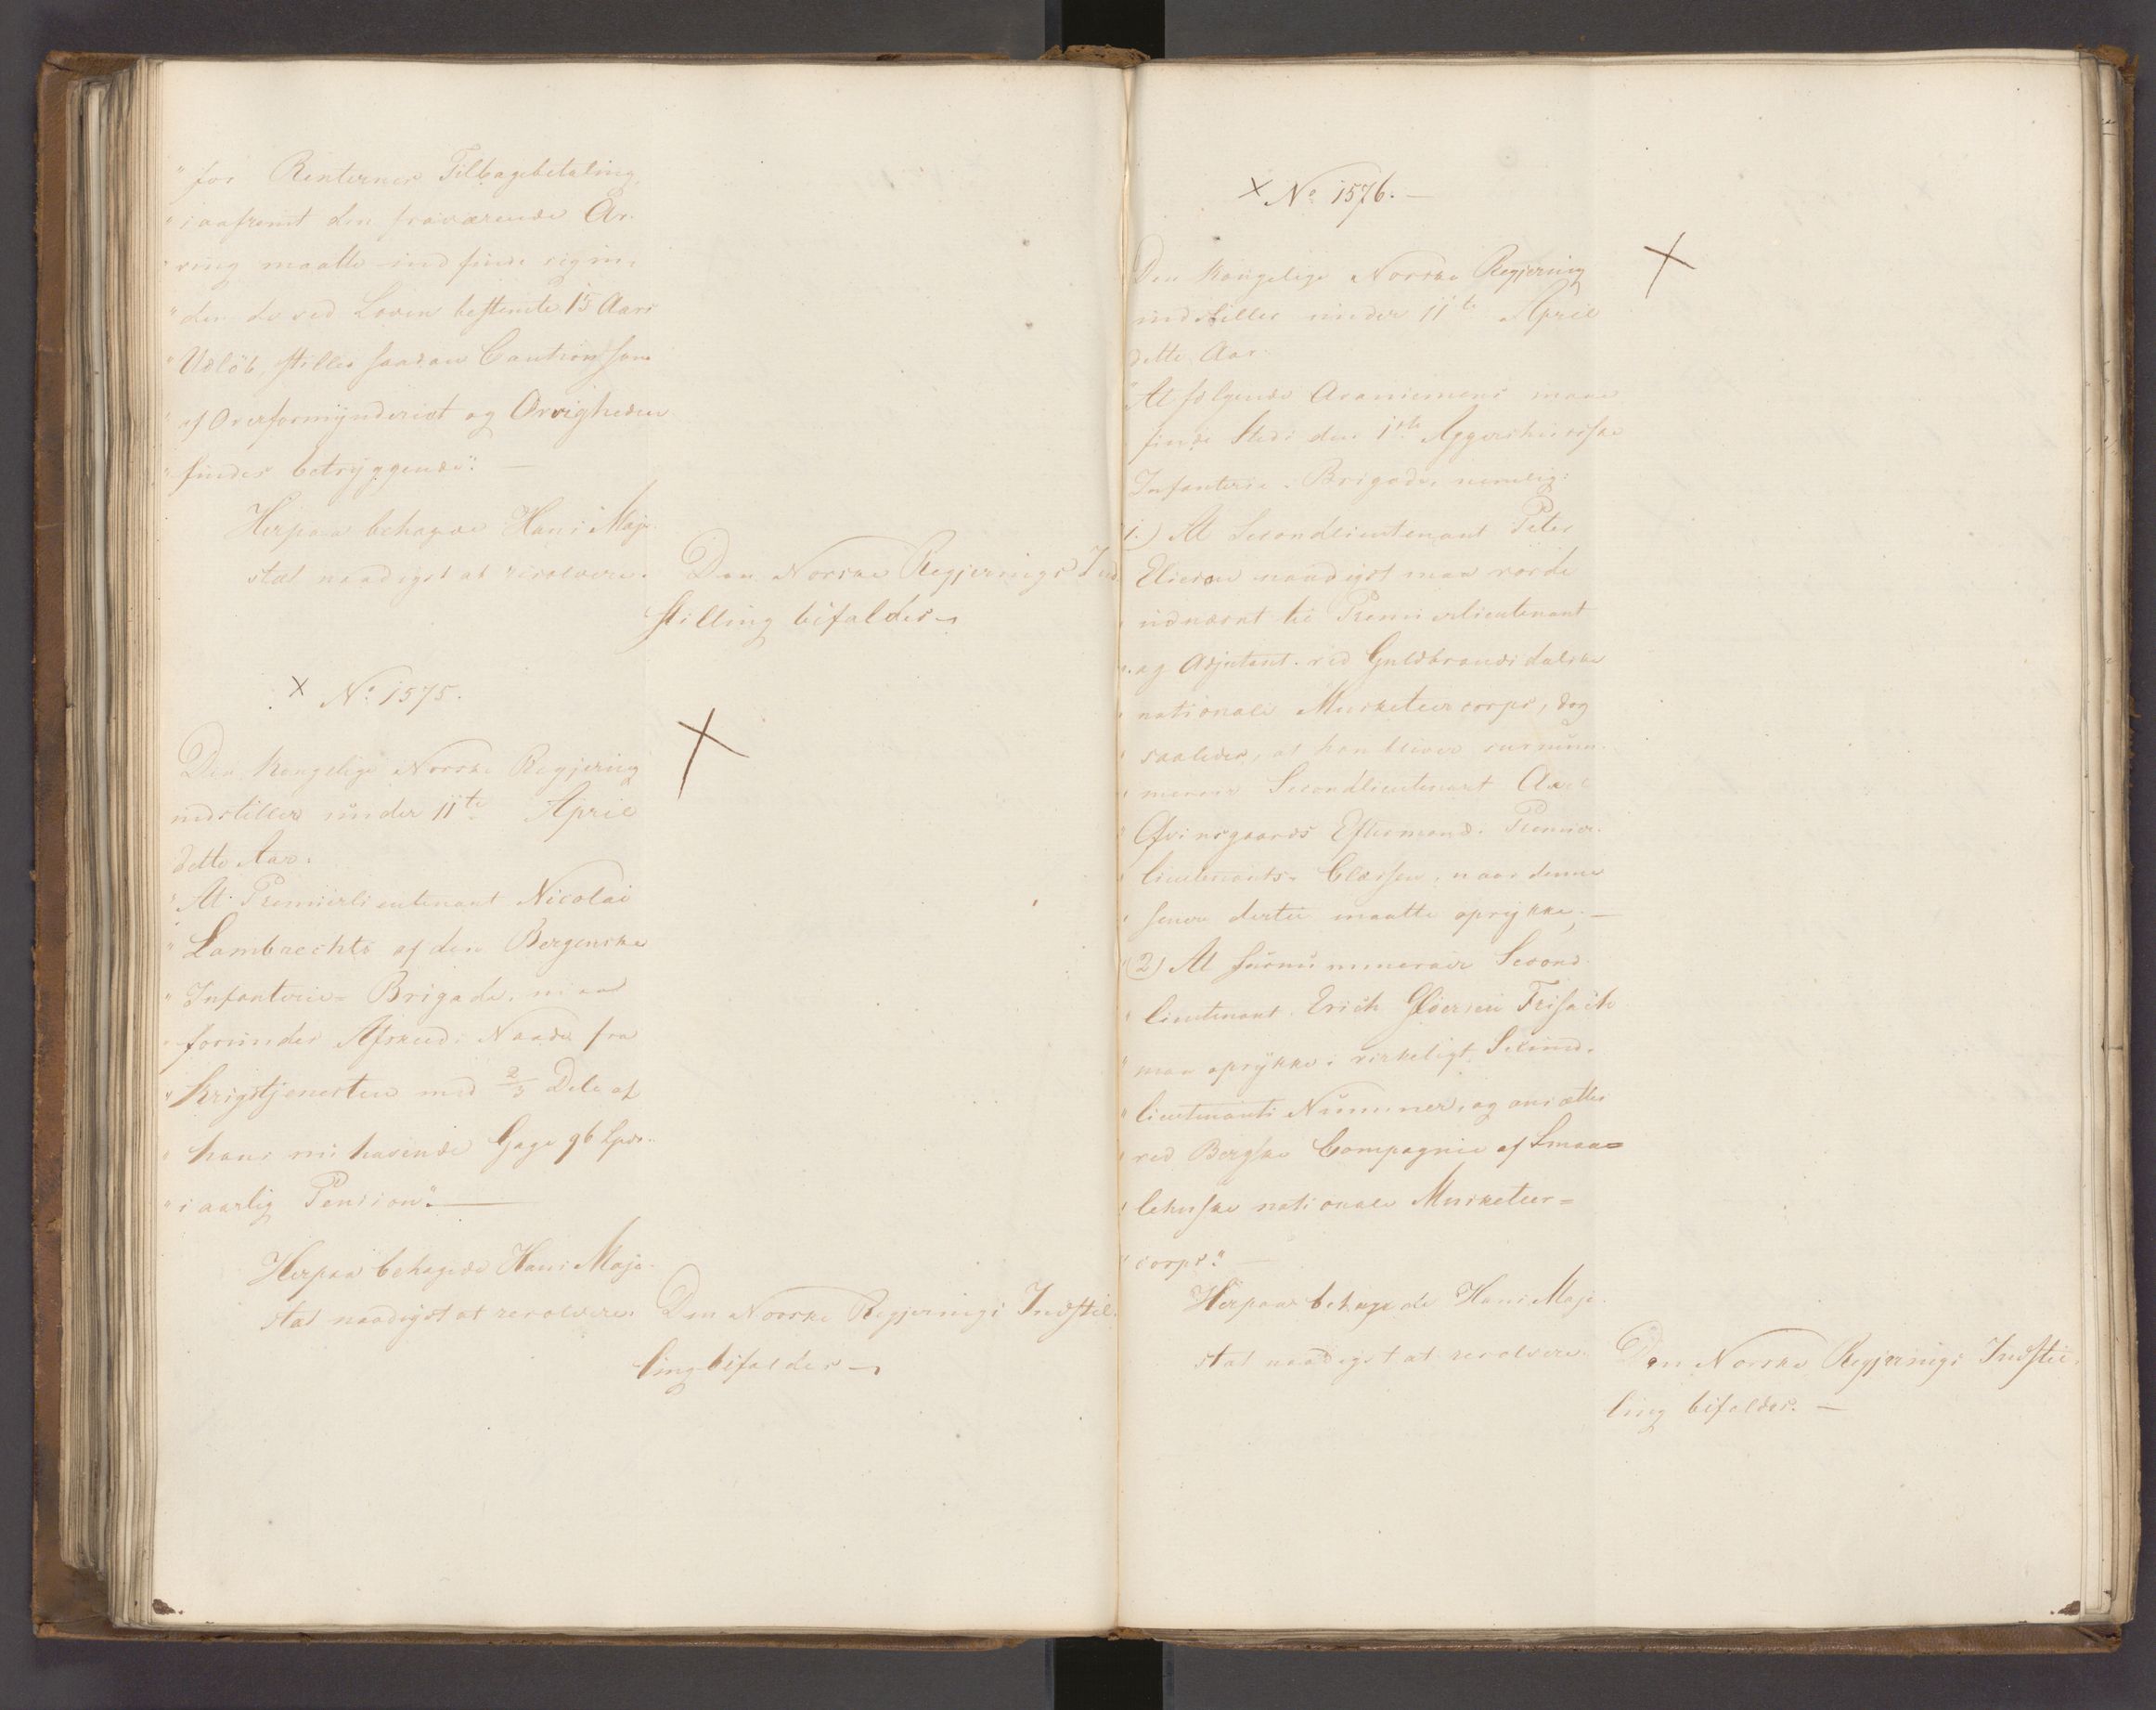 " for Renternes Tilbagebetaling,
" saafremt den fraværende Ar-
" ving maatte indfinde sig in-
" den de ved Loven bestemte 15 Aars
" Udløb, stilles saadan Caution som
" af Overformynderiet og Øvrigheden
" findes betryggende". —
Herpaa behagede Hans Maje-
stæt naadigst at resolvere.
Den Norske Regjerings Ind-
stilling bifaldes —
x No 1575.
Den kongelige Norske Regjering
indstiller under 11te April
dette Aar.
" At Premierlieutenant Nicolai
" Lambrechts af den Bergenske
" Infanterie-Brigade, maa
" forundes Afskeed i Naade fra
" Krigstjenesten med 2/3 Dele af
" hans nu havende Gage 96 Spd.
" i aarlig Pension". —
Herpaa behagede Hans Maje-
stæt naadigst at resolvere.
Den Norske Regjerings Indstil-
ling bifaldes —
x No 1576. —
Den Kongelige Norske Regjering
indstiller under 11te April
dette Aar.
" At følgende Avancemens maae
finde Sted i den 1ste Aggershuusske
Infanterie-Brigade, nemlig:
1.) At Secondlieutenant Peter
Eliesen naadigst maa vorde
" udnævnt til Premierlieutenant
" og Adjutant ved Guldbrandsdalske
" nationale Musketeercorps, dog
" saaledes, at han bliver surnum-
" merair Secondlieutenant
" Eftermand i Premier-
" lieutenants-Classen, naar denne
" senere dertil maatte oprykke; —
" 2) At surnummerair Second-
" lieutenant Erich Gløersen Frisach
" maa oprykke i virkeligt Second-
" lieutenants Nummer, og ansættes
" ved Bergske Compagnie af Smaa=
" lehnske nationale Musketeer=
" corps". —
Herpaa behagede Hans Maje-
stæt naadigst at resolvere.
Den Norske Regjerings Indstil-
ling bifaldes. —